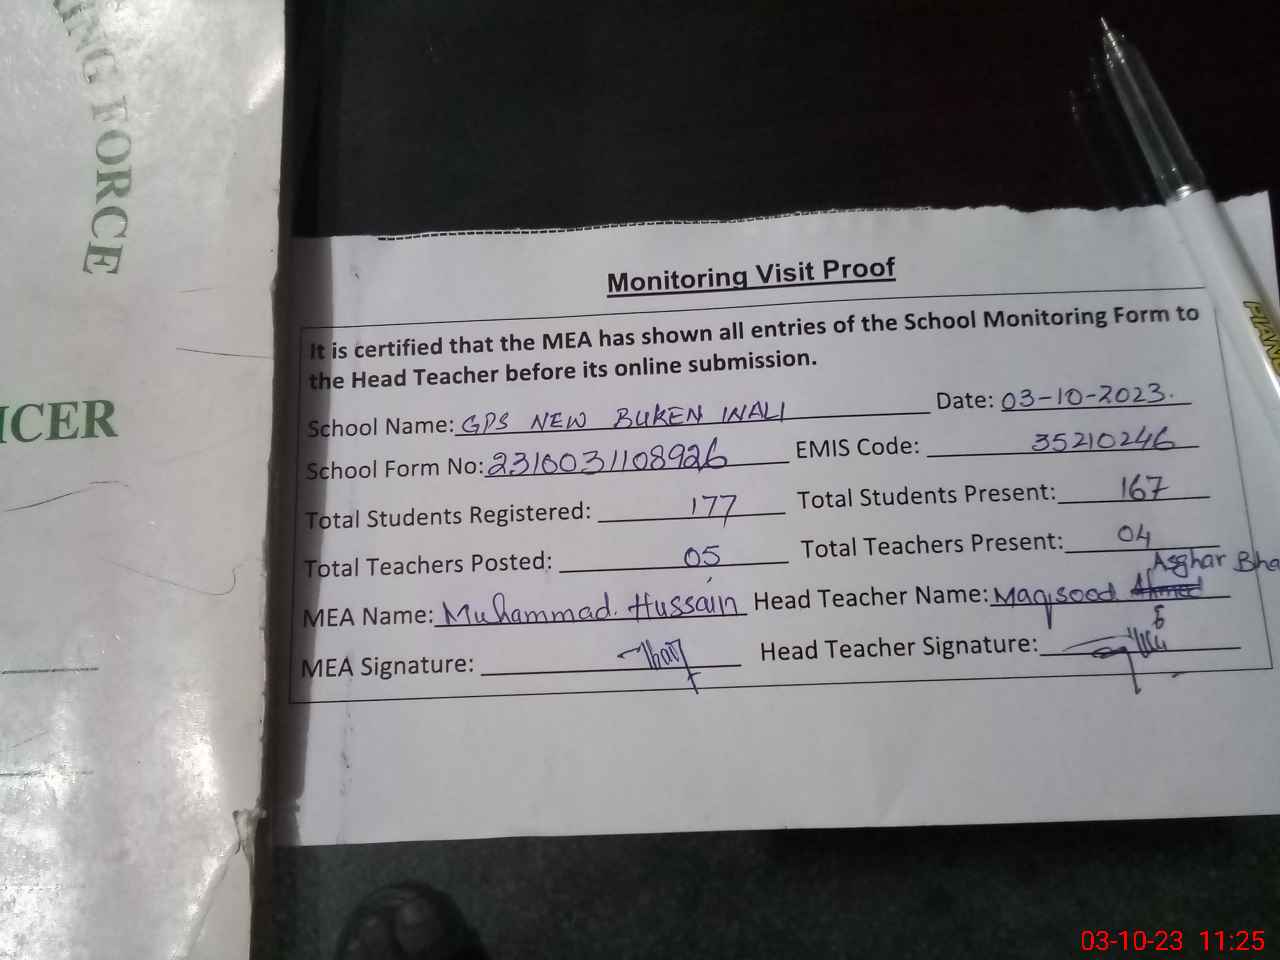 ING FORCE
ICER
Monitoring Visit Proof
It is certified that the MEA has shown all entries of the School Monitoring Form to
the Head Teacher before its online submission.
School Name: GPS NEW BUKEN WALI Date: 03-10-2023.
School Form No: 2310031108926 EMIS Code: 35210246
Total Students Registered: 177 Total Students Present: 167
Total Teachers Posted: 05 Total Teachers Present: 04
Asghar Bha
MEA Name: Muhammad. Hussain Head Teacher Name: Maqsood Ahmed
MEA Signature: Head Teacher Signature:
PIANO
03-10-23 11:25